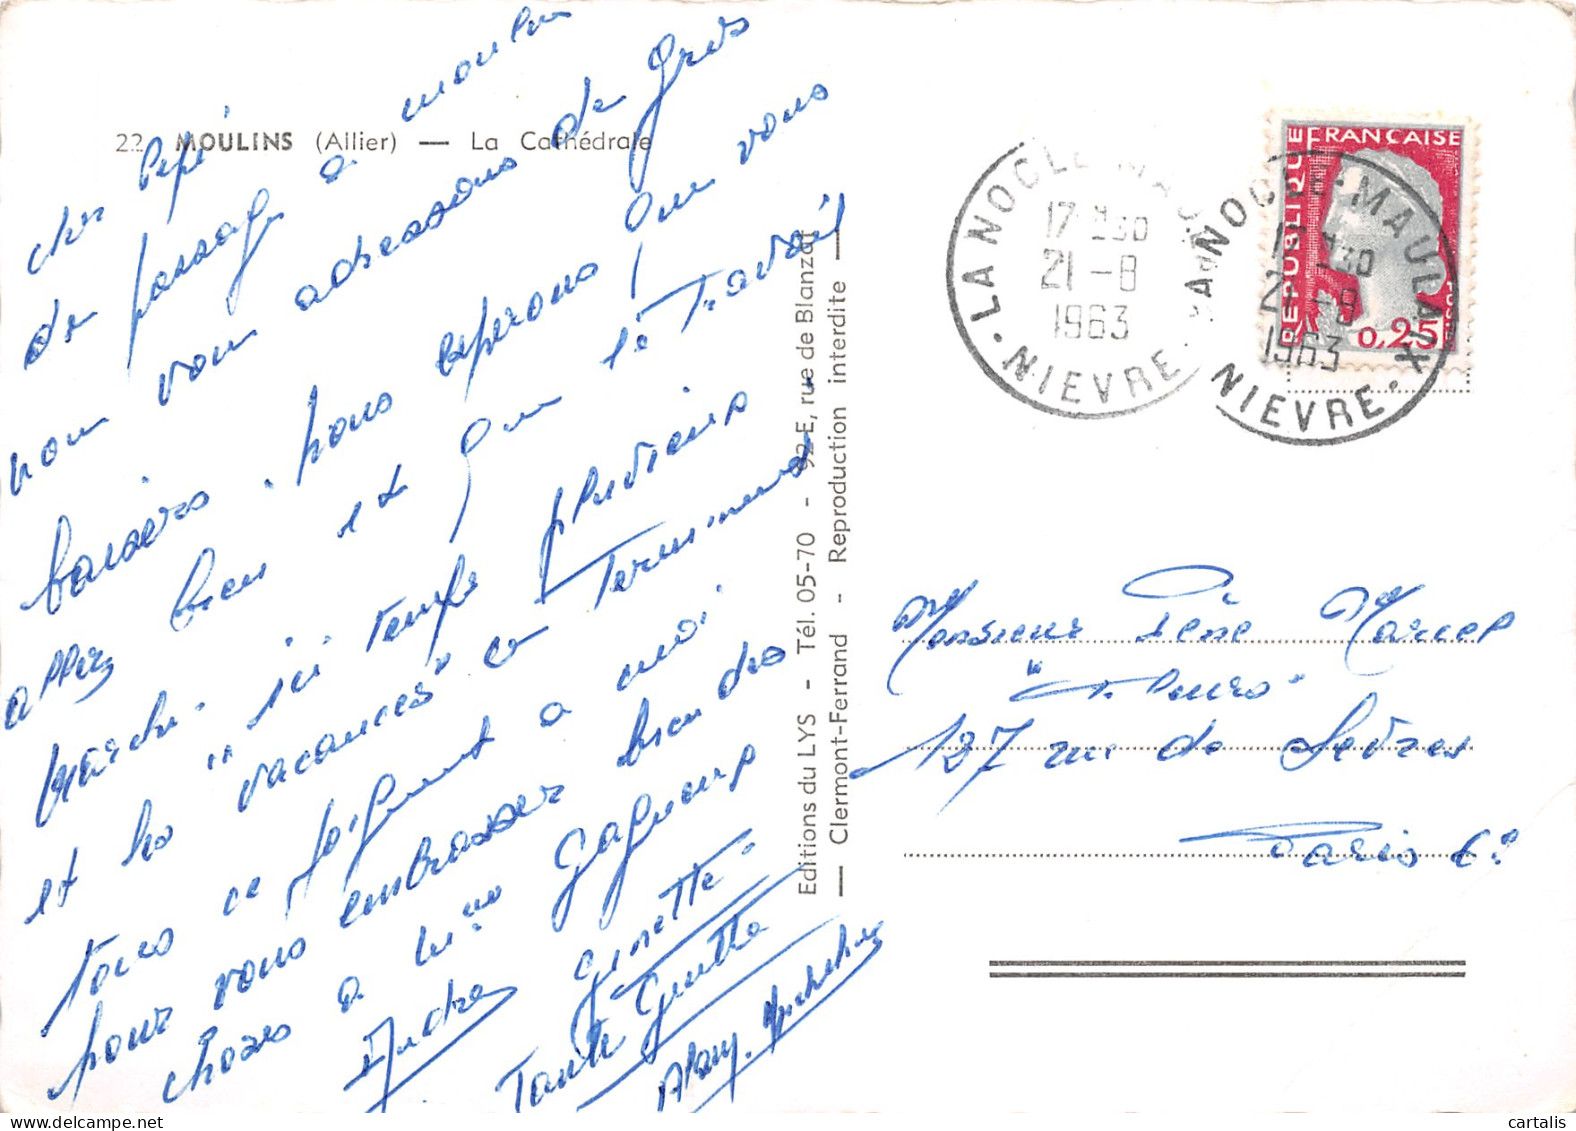 22 - MOULINS (Allier) — La Cathédrale
cher Pépé
de passage a moulin
nous vous adressons de gros
baisers. nous esperons que vous
allez bien et que le Travail
marche. ici temps pluvieux
et les "vacances" se Terminent
tous se joignent a moi
pour vous embrasser bien des
choses a Mme Gagneux
André Ginette
Tante Ginette
Alain. Michel
Editions du LYS - Tél. 05-70 - 92 E, rue de Blanzat
— Clermont-Ferrand - Reproduction interdite —
LA NOCLE-MAULAIX
17H30
21-8
1963
NIEVRE
LA NOCLE-MAULAIX
17H30
21-8
1963
NIEVRE
REPUBLIQUE FRANÇAISE
POSTES
0,25
Monsieur Père Marcel
127 rue de Sèvres
Paris 6e
cartalis